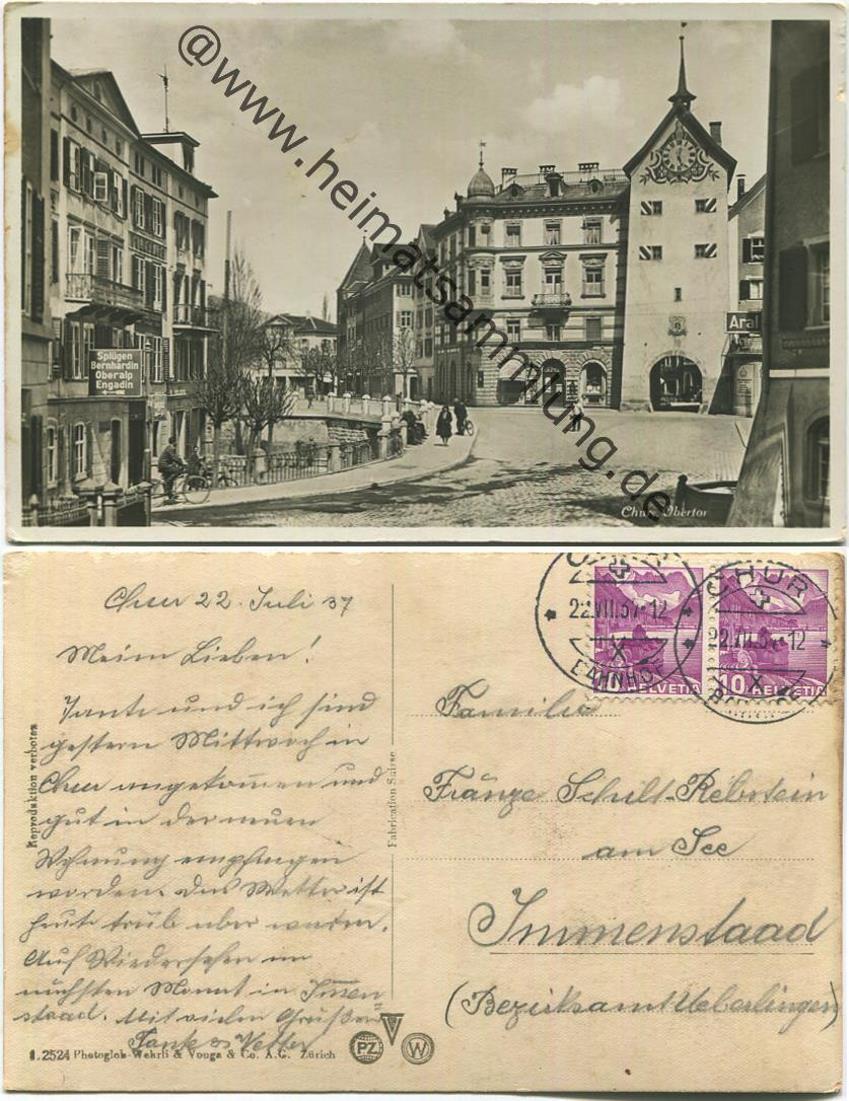 @www.heimatsammlung.de
Splügen
Bernhardin
Oberalp
Engadin
Aral
Chur, Obertor
Chur 22. Juli 37
Meine Lieben!
Tante und ich sind
gestern Mittwoch in
Chur angekommen und
gut in der neuen
Wohnung empfangen
worden. Das Wetter ist
heute trüb aber warm.
Auf Wiedersehen im
nächsten Monat in Immen=
staad. Mit vielen Grüßen
Tante Vetter
Reproduktion verboten
Fabrication Suisse
1.2524 Photoglob-Wehrli & Vouga & Co. A.G. Zürich
PZ
W
CHUR
22.VII.37-12
X
BAHNHOF
CHUR
22.VII.37-12
X
10 HELVETIA
10 HELVETIA
Familie
Fränze Schilt-Rebstein
am See
Immenstaad
(Bezirksamt Ueberlingen)